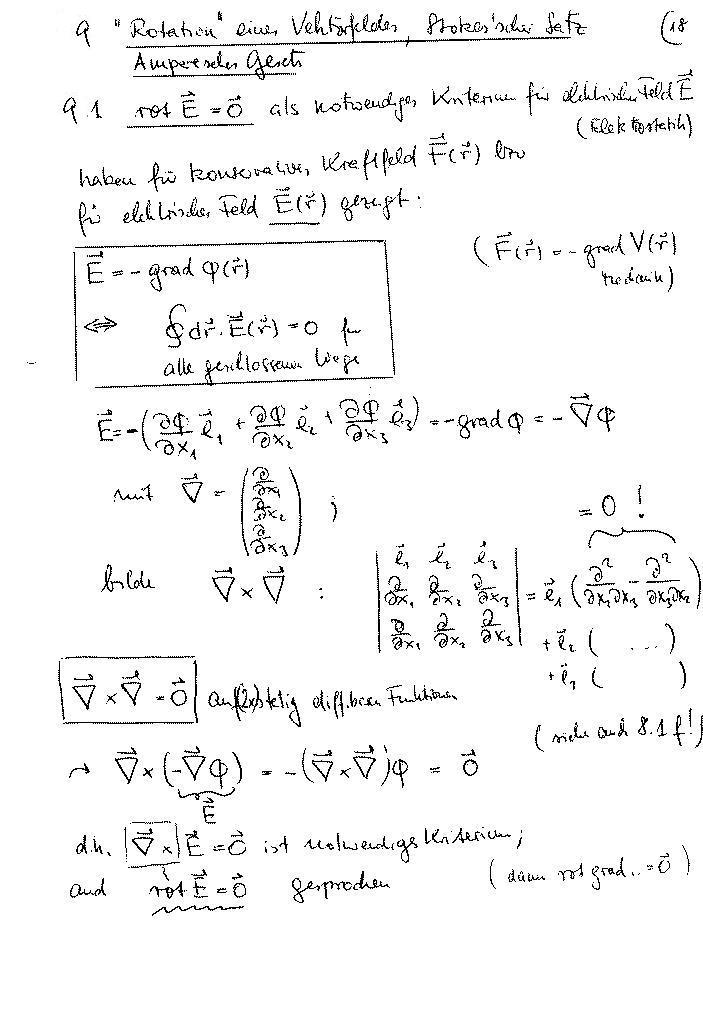 9 "Rotation" eines Vektorfeldes, Stokes'scher Satz (18
Amperesches Gesetz
9.1 rot E⃗ = 0⃗ als notwendiges Kriterium für elektrisches Feld E⃗
(Elektrostatik)
haben für konservatives Kraftfeld F⃗(r⃗) bzw
für elektrisches Feld E⃗(r⃗) gezeigt:
E⃗ = - grad φ(r⃗) (F⃗(r⃗) = - grad V(r⃗)
Mechanik)
⇔ ∮ dr⃗ · E⃗(r⃗) = 0 für
alle geschlossenen Wege
E⃗ = -(∂φ/∂x₁ e⃗₁ + ∂φ/∂x₂ e⃗₂ + ∂φ/∂x₃ e⃗₃) = - grad φ = - ∇⃗φ
mit ∇⃗ = (∂/∂x₁ ∂/∂x₂ ∂/∂x₃) ; = 0 !
bilde ∇⃗ × ∇⃗ : | e⃗₁ e⃗₂ e⃗₃
∂/∂x₁ ∂/∂x₂ ∂/∂x₃
∂/∂x₁ ∂/∂x₂ ∂/∂x₃ | = e⃗₁ (∂²/∂x₂∂x₃ - ∂²/∂x₃∂x₂)
+ e⃗₂ ( ... )
+ e⃗₃ ( )
∇⃗ × ∇⃗ = 0⃗ auf (2x) stetig diff.baren Funktionen
(siehe auch 8.1 f!)
→ ∇⃗ × (-∇⃗φ) = -(∇⃗ × ∇⃗)φ = 0⃗
E⃗
d.h. ∇⃗ × E⃗ = 0⃗ ist notwendiges Kriterium;
auch rot E⃗ = 0⃗ gesprochen (dann rot grad.. = 0⃗)